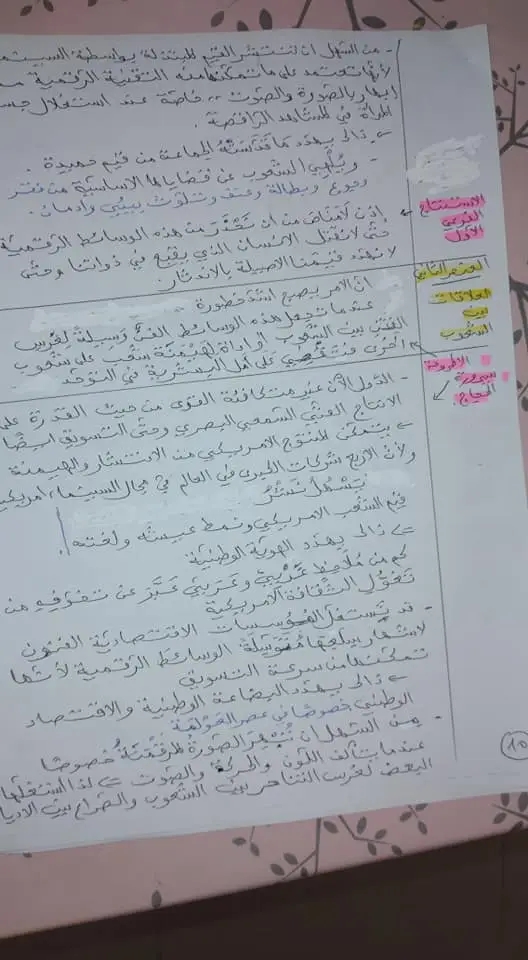 - من السهل ان تنتشر القيم المبتذلة بواسطة السينما
لأنها تعتمد على ما تمكنها منه التقنية الرقمية من
إبهار بالصورة والصوت .. خاصة عند استغلال جسد
المرأة في المشاهد الراقصة.
← ذلك يهدد ما قدسته الجماعة من قيم حميدة.
- ويُلهي الشعوب عن قضاياها الاساسية من فقر
وجوع وبطالة وعنف وتلوّث بيئي وادمان.
الاستنتاج
الفرعي
الأول
إذن لا مناص من ان نحذر من هذه الوسائط الرقمية
حتى لا نقتل الانسان الذي يقبع في ذواتنا وحتى
لا نهدد قيمنا الاصيلة بالاندثار.
العنصر الثاني
العلاقات
بين
الشعوب
ان الأمر يصبح اشد خطورة
عندما تجعل هذه الوسائط الفن وسيلة لغرس
الفتن بين الشعوب أو أداة لهيمنة شعب على شعوب
أخرى على أمل البشرية في التوحد
الاطروحة
سيرورة
الحجاج
- الدول الآن غير متكافئة القوى من حيث القدرة على
الانتاج الفني السمعي البصري وحتى التسويق ايضا
← يتمكن المنتوج الامريكي من الانتشار والهيمنة
ولأن الاربع شركات الكبرى في العالم في مجال السينما امريكية
يَسْهُلُ نَشْرُ
قيم الشعب الامريكي ونمط عيشه ولغته.
← ذلك يهدد الهوية الوطنية
كم من مُلاحظ غربيّ وعربيّ عبّر عن تخوّفه من
تغوّل الثقافة الامريكية
- قد تستغل المؤسسات الاقتصادية الفنون
لاشهار سلعها مُتوسّلة الوسائط الرقمية لأنها
تمكنها من سرعة التسويق
← ذلك يهدد البضاعة الوطنية والاقتصاد
الوطني خصوصا في عصر العولمة
- من السهل ان تُبهر الصورة المُرقمنة خصوصا
عندما يتآلف اللون والحركة والصوت ← لذا استغلها
البعض لغرس التنافر بين الشعوب والصراع بين الاديان
10